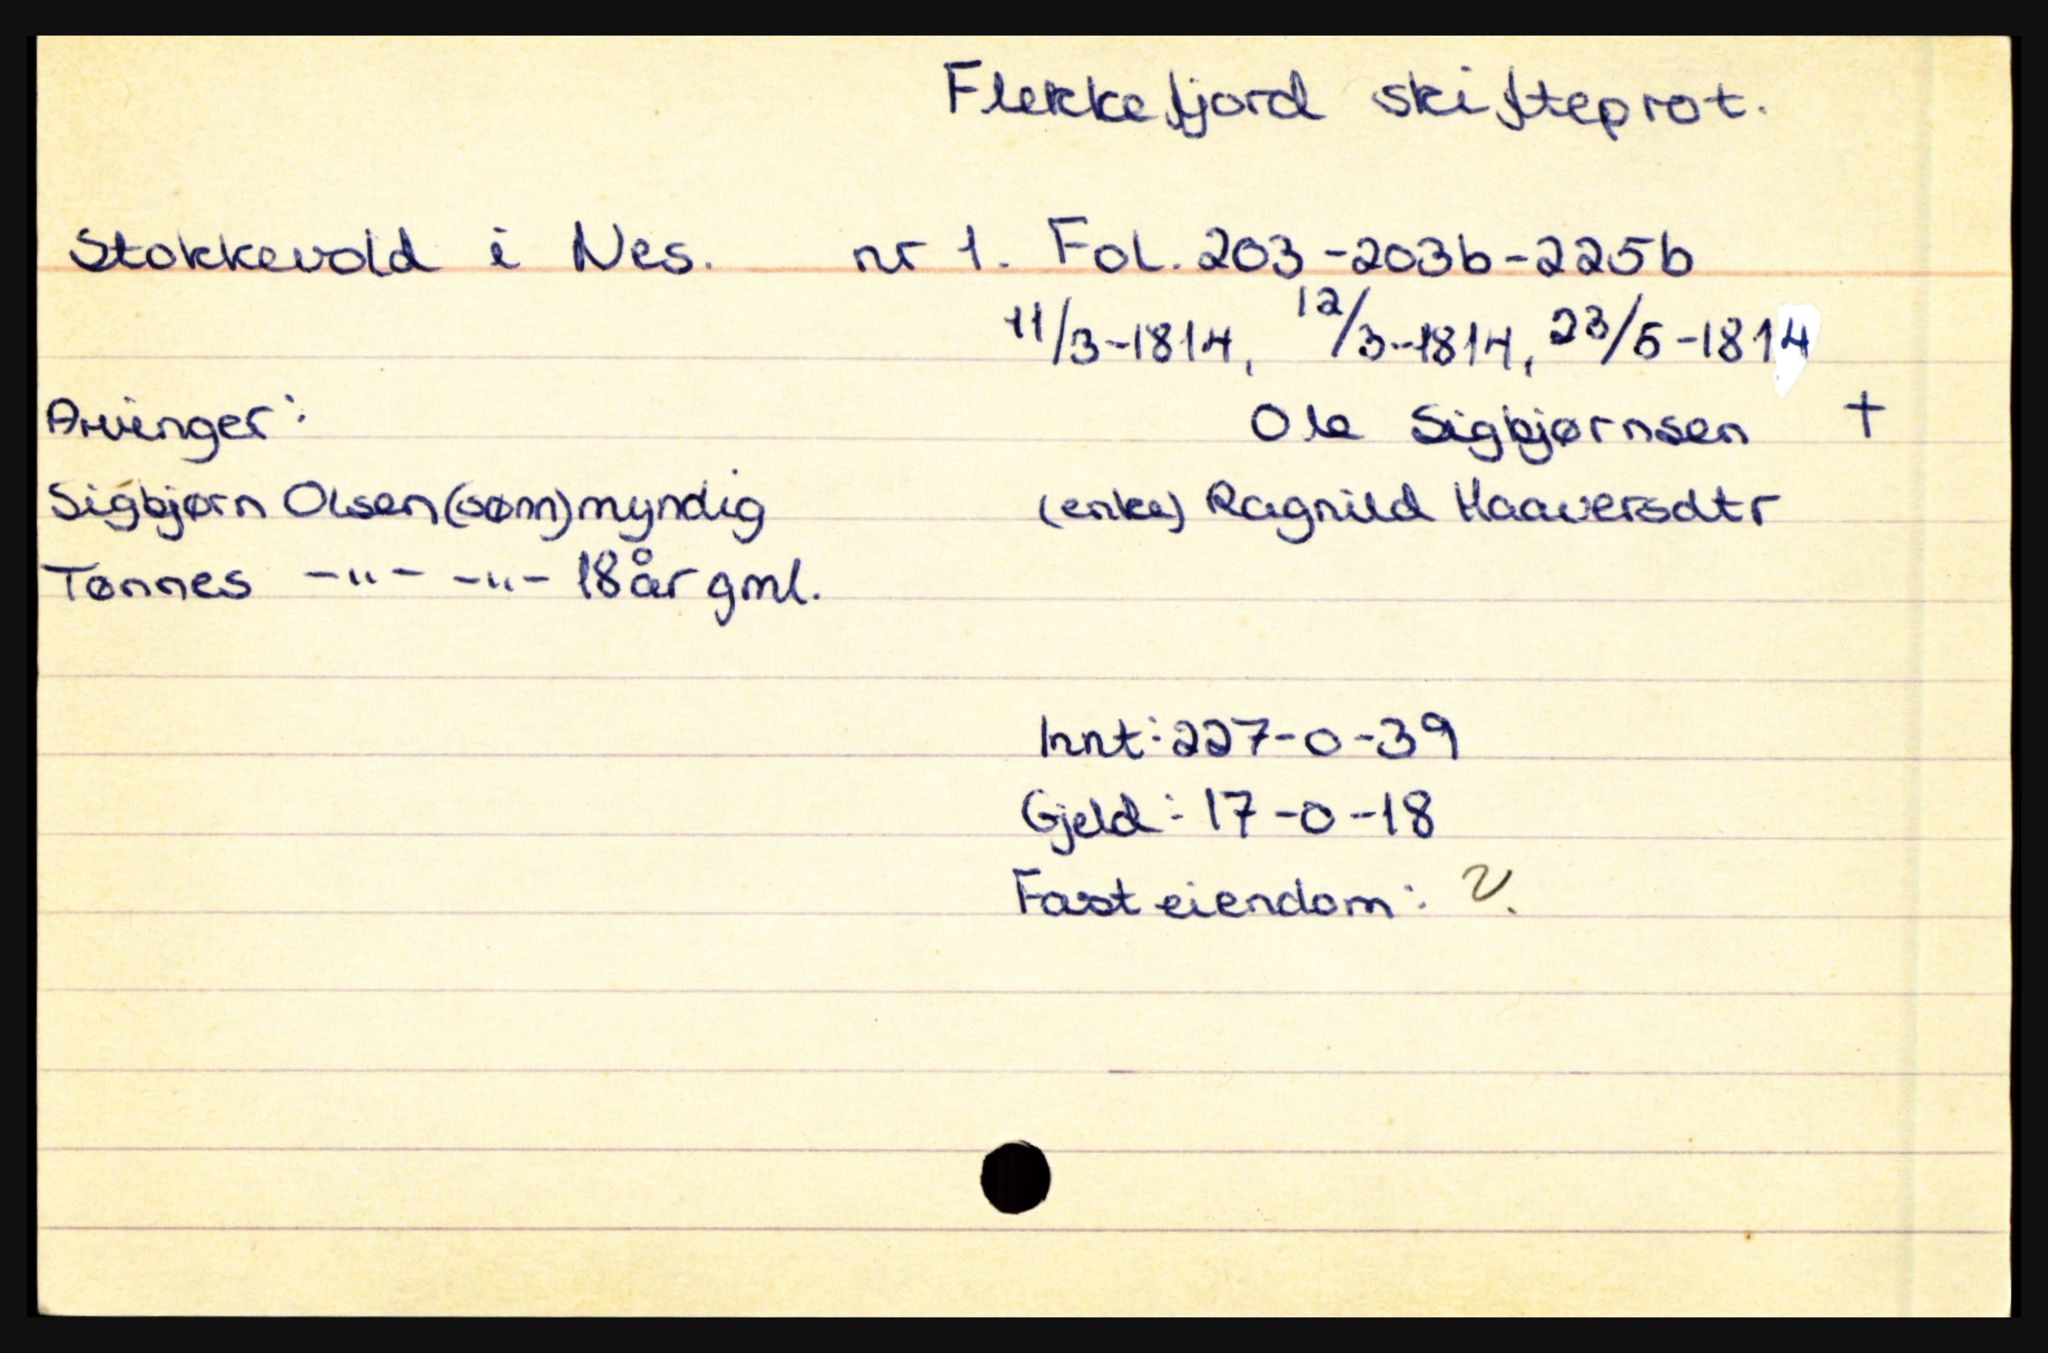 Flekkefjord skifteprot.
Stokkevold i Nes. nr 1. Fol. 203-203b-225b
11/3-1814, 12/3-1814, 23/5-1814
Arvinger: Ole Sigbjørnsen +
Sigbjørn Olsen (sønn) myndig (enke) Ragnild Haaversdtr
Tønnes -"- -"- 18 år gml.
Innt: 227-0-39
Gjeld: 17-0-18
Fast eiendom: